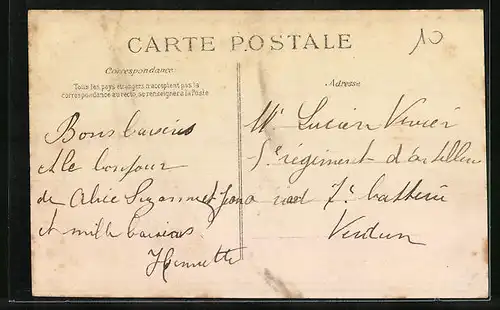 CARTE POSTALE
10
Correspondance
Tous les pays étrangers n'acceptent pas la
correspondance au recto, se renseigner à la Poste
Adresse
Bons baisers
et le bonjour
de Alice Suzanne et
et mille baisers
Henriette
Mr Lucien Vivier
5e régiment d'artillerie
à pied 7e batterie
Verdun